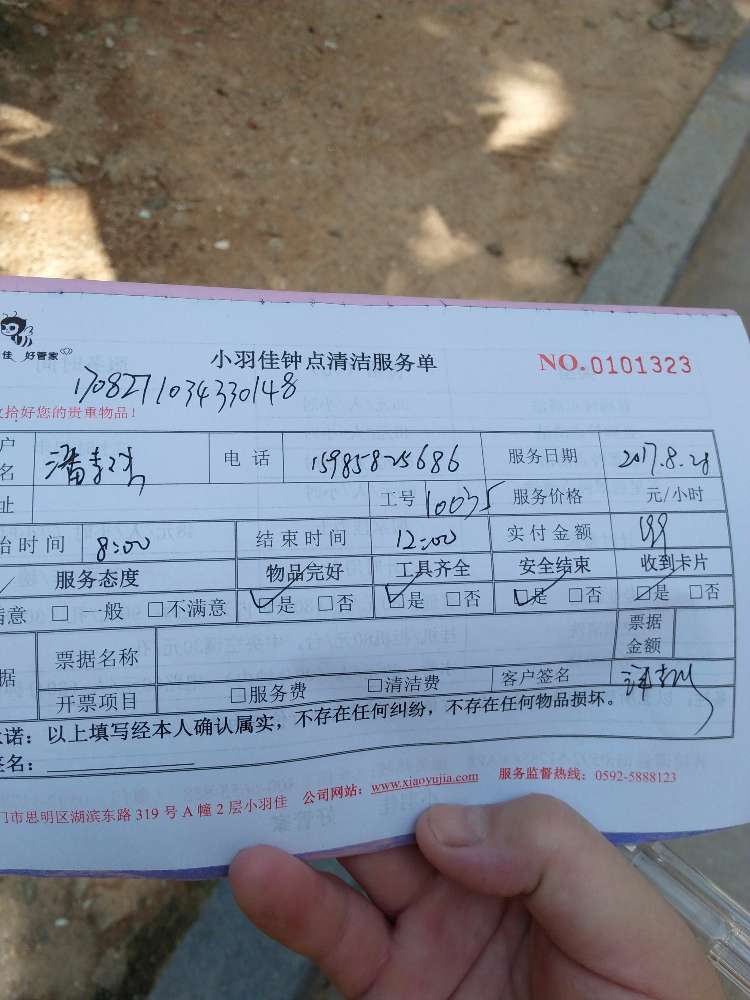 佳 好管家
小羽佳钟点清洁服务单 NO.0101323
1708271034330148
收拾好您的贵重物品!
户名 电话 15985825686 服务日期 2017.8.28
址 工号 10035 服务价格 元/小时
始时间 8:00 结束时间 12:00 实付金额
服务态度 物品完好 工具齐全 安全结束 收到卡片
满意 □一般 □不满意 ☑是 □否 ☑是 □否 ☑是 □否 ☑是 □否
据 票据名称 票据金额
开票项目 □服务费 □清洁费 客户签名
承诺：以上填写经本人确认属实，不存在任何纠纷，不存在任何物品损坏。
签名：
门市思明区湖滨东路319号A幢2层小羽佳 公司网站：www.xiaoyujia.com 服务监督热线：0592-5888123